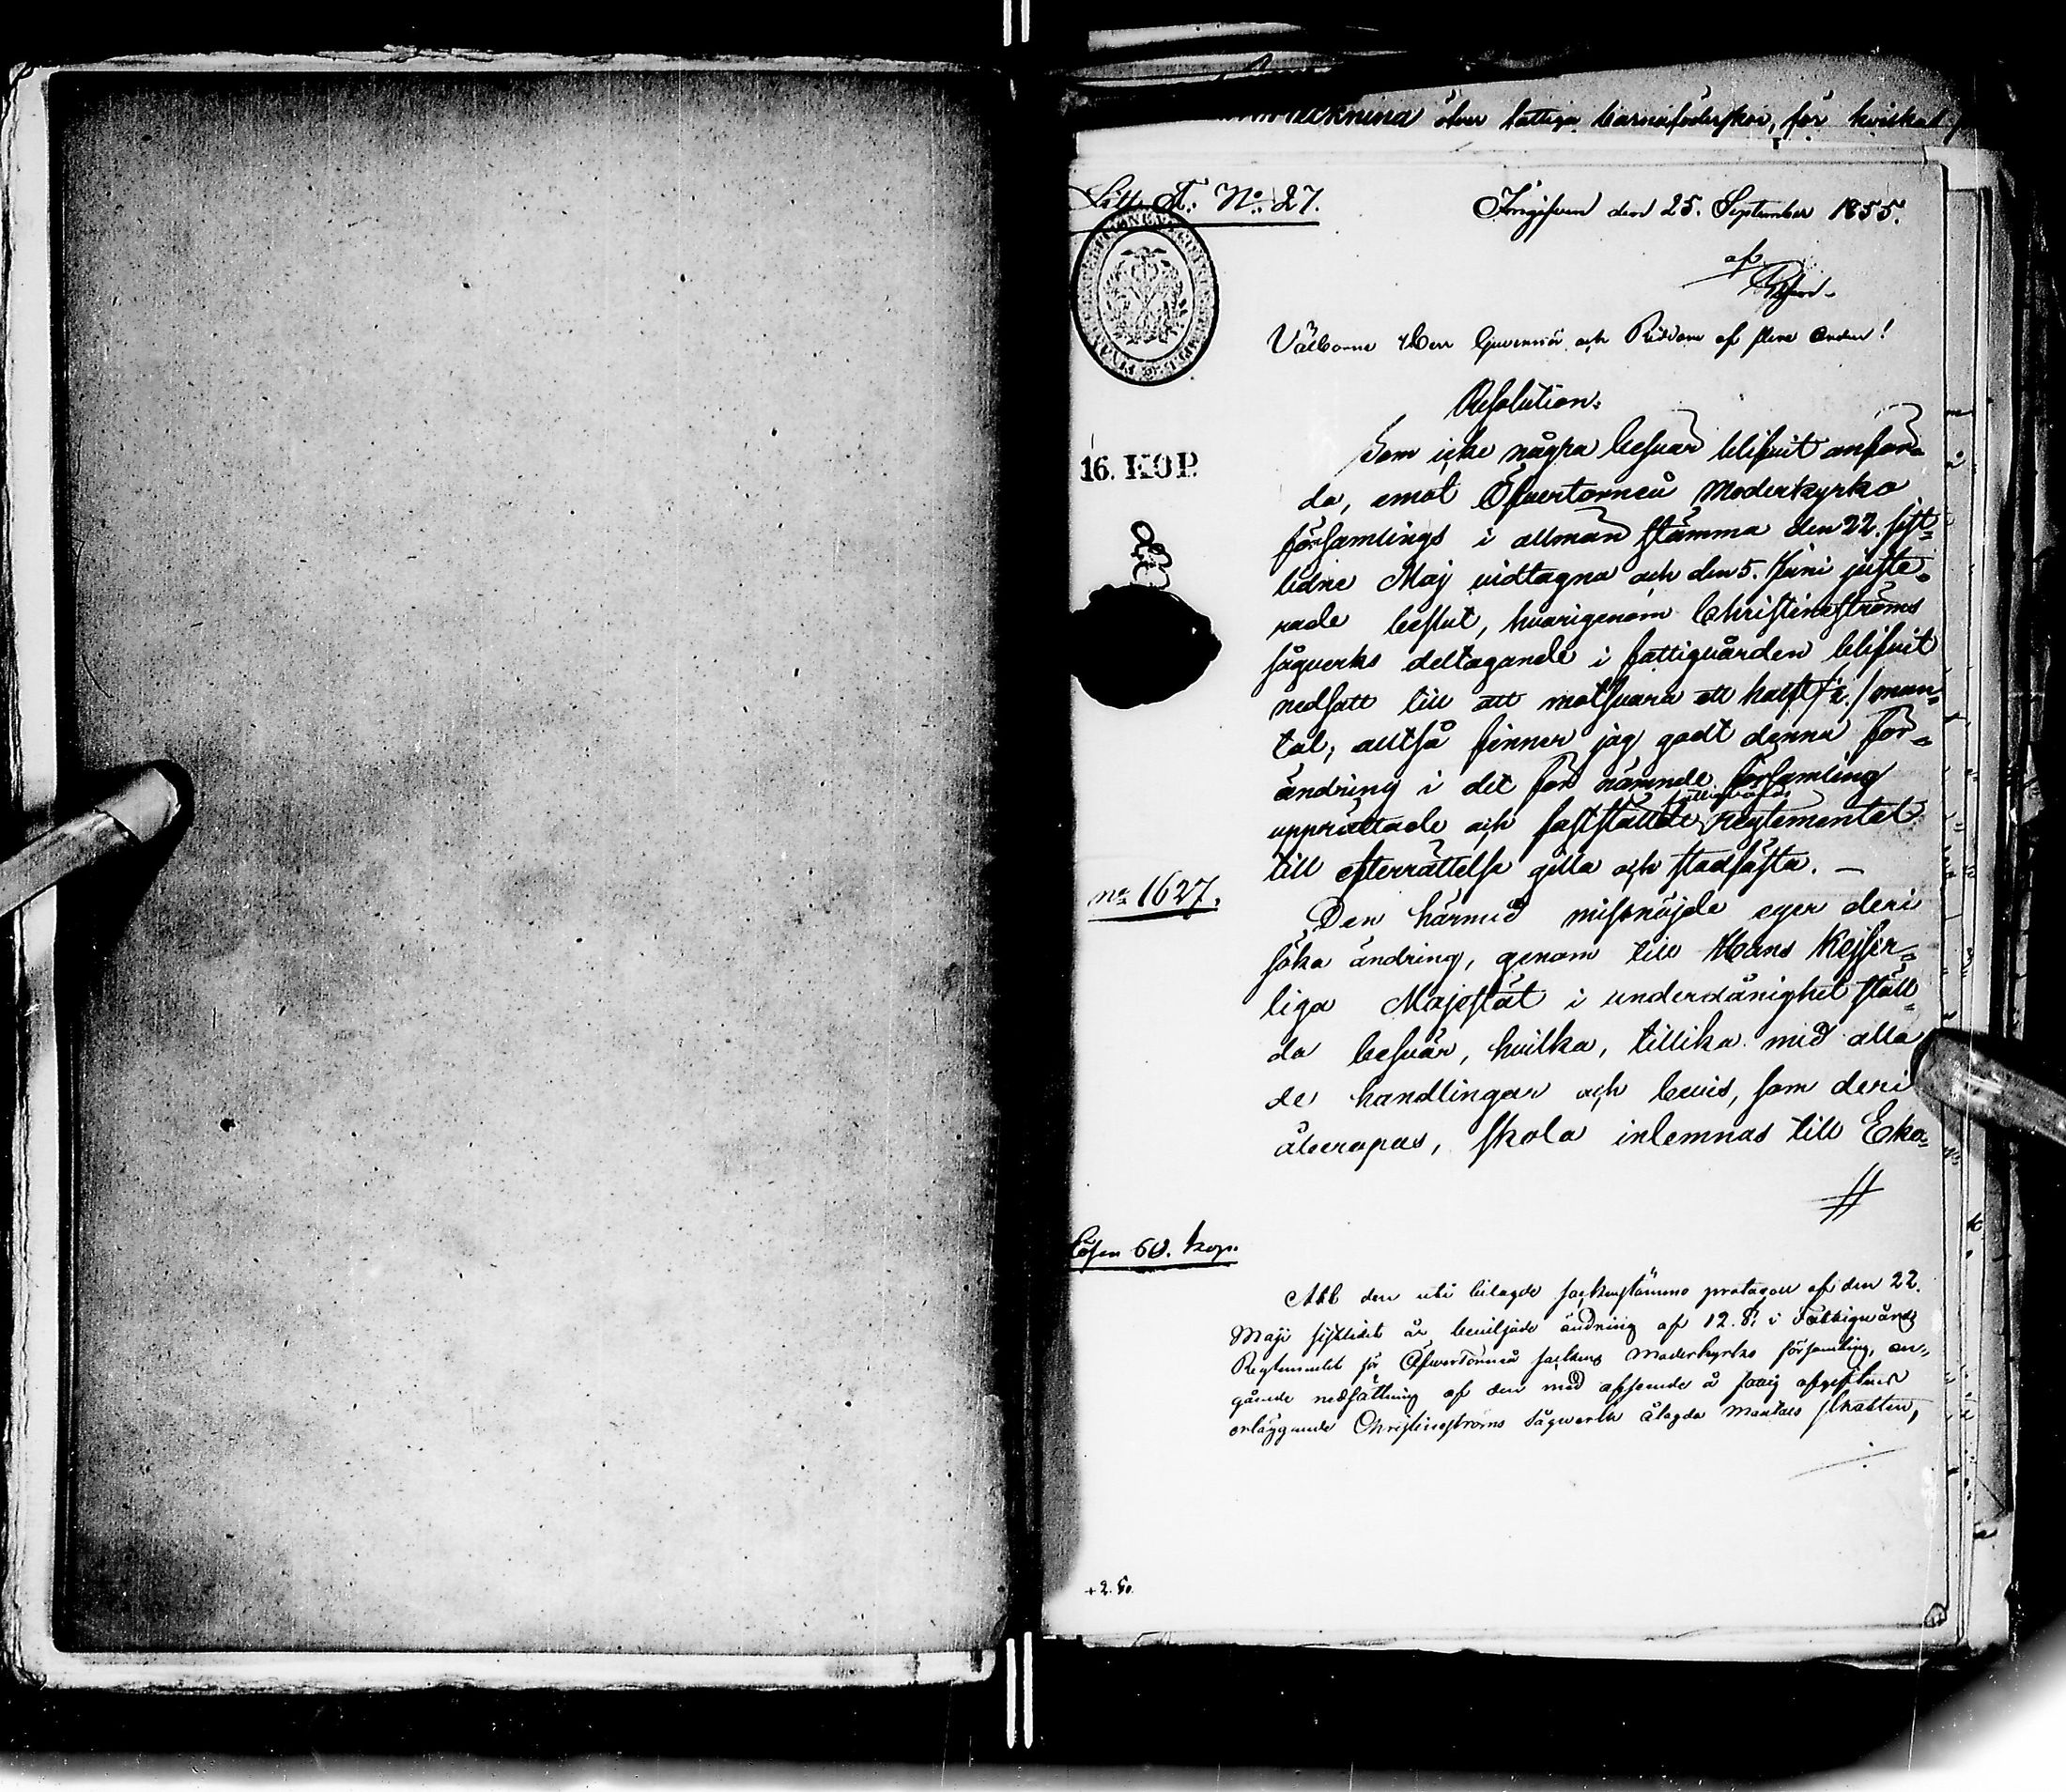 öfver fattiga barnaföderskor, för hvilka
Litt. A. No. 27.
Ingifven den 25. September 1855.
af
Välborne Herr Guvernör och Riddare af flere Orden!
Resolution:
16. KOP.
Som icke några besvär blifvit anför-
da, emot Öfvertorneå Moderkyrko
församlings i allmän stämma den 22. sist-
lidne Maj vidtagna och den 5. Juni juste-
rade beslut, hvarigenom Christineströms
sågverks deltagande i fattigvården blifvit
nedsatt till att motsvara ett halft /½./ man-
tal; alltså finner jag godt denna för-
ändring i det för nämnde församling
fattigvårds
upprättade och fastställde reglementet
till efterrättelse gilla och stadfästa. —
No 1627.
Den härmed missnöjde eger deri
söka ändring, genom till Hans Kejser-
liga Majestät i underdånighet ställ-
da besvär, hvilka, tillika med alla
de handlingar och bevis, som deri
åberopas, skola inlemnas till Eko-
Lösen 60. kop.
Att den uti bilagde sockenstämmo protocoll af den 22.
Maji sistlidet år beviljade ändring af 12. §. i Fattigvårds
Reglementet för Öfvertorneå sockens Moderkyrko församling, an-
gående nedsättning af den med afseende å
erläggande Christineströms Sågverk ålagde Mantals skatten,
+2.50.